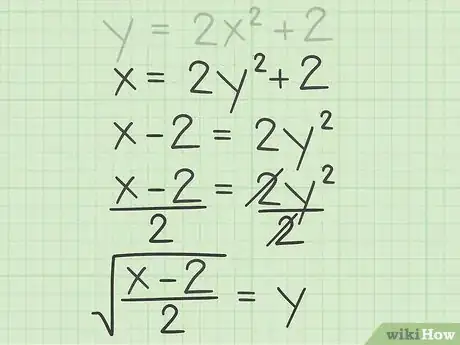 y = 2x² + 2
x = 2y² + 2
x - 2 = 2y²
x - 2 / 2 = 2y² / 2
√(x - 2 / 2) = y
wikiHow